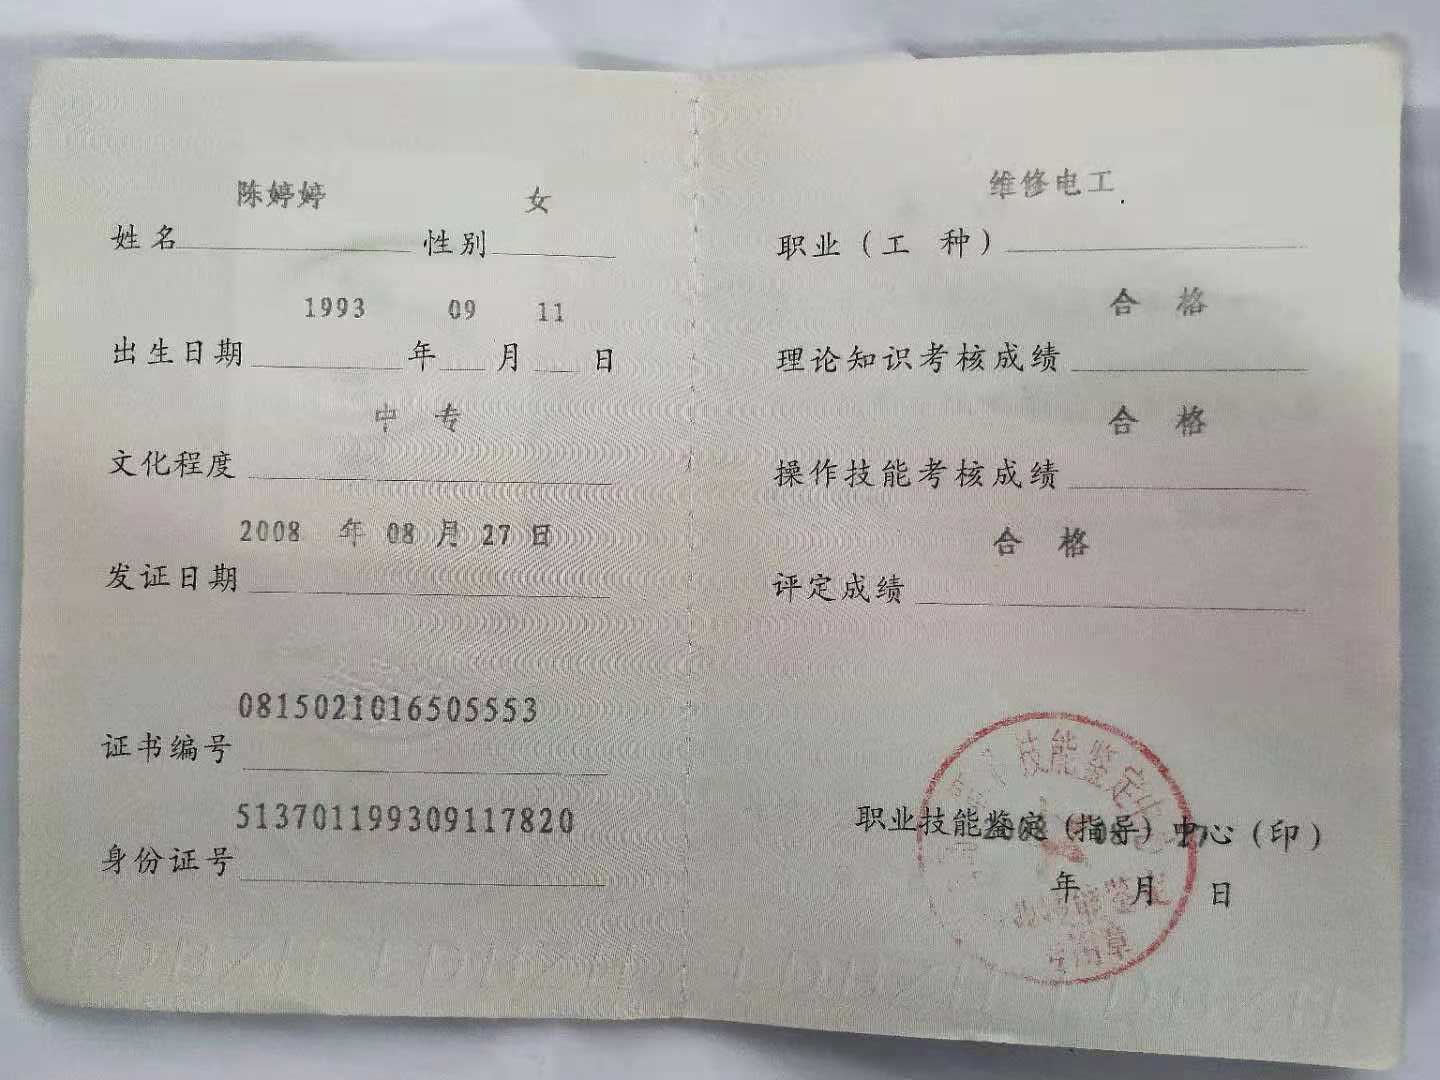 陈婷婷 女
姓名 性别
1993 09 11
出生日期 年 月 日
中 专
文化程度
2008 年 08 月 27 日
发证日期
0815021016505553
证书编号
513701199309117820
身份证号
维修电工
职业（工 种）
合 格
理论知识考核成绩
合 格
操作技能考核成绩
合 格
评定成绩
技能鉴定中心
职业技能鉴定（指导）中心（印）
2008 08
年 月 日
技能鉴定
专用章